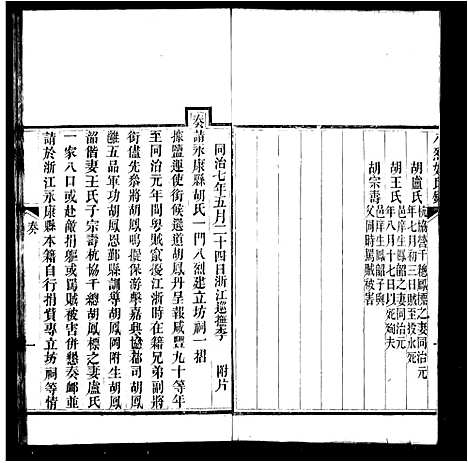 胡盧氏杭協營千總鳳標之妻同治元
年七月初三日賊至投水死
胡王氏邑庠生鳳韶之妻同治元
年八月十七日以死殉夫
胡宗壽邑庠生鳳韶之子與
父同時罵賊被害
同治七年五月二十四日浙江巡撫李　附片
奏請永康縣胡氏一門八烈建立坊祠一摺
據鹽運使銜候選道胡鳳丹呈報咸豐九十等年
至同治元年間粵賊竄擾江浙時在籍兄弟副將
銜儘先參將胡鳳鳴提保游擊嘉興協都司胡鳳
雝五品軍功胡鳳恩鄞縣訓導胡鳳岡附生胡鳳
韶偕妻王氏子宗壽杭協千總胡鳳標之妻盧氏
一家八口或赴敵捐軀或罵賊被害併懇奏卹並
請於浙江永康縣本籍自行捐資專立坊祠等情
奏